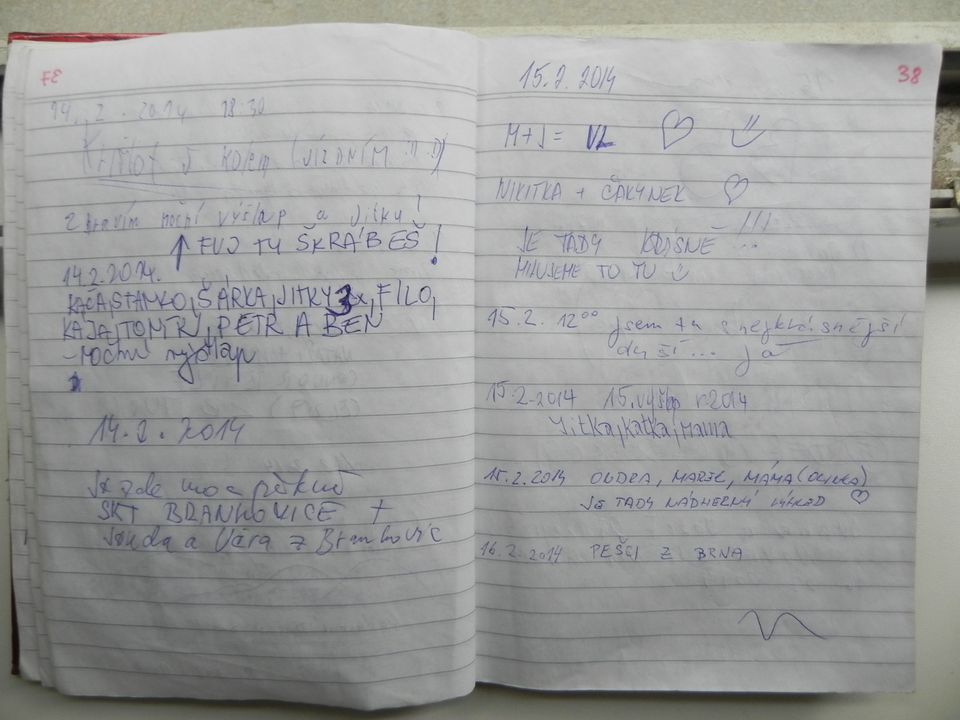 37
14. 2. 2014 18:30
Kryštof s kolem (jízdním :D)
Zdravím noční výšlap a Jitky!
↑ FUJ TY ŠKRÁBEŠ!
14.2.2014.
KÁČA, STANKO, ŠÁRKA, JITKY 3x, FÍLO,
KÁJA, TOMÍRY, PETR A BEN
- noční vyšlap
14. 2. 2014
Je zde moc pěkně
SKT BRANKOVICE +
Věra z Brankovic
38
15. 2. 2014
M+J = VL ♡
NIKITKA + ČAKYNEK ♡
JE TADY KRÁSNĚ !!!
MILUJEME TO TU
15.2. 12⁰⁰ jsem tu s nejkrásnější
duší... já
15.2.2014 15. výšlap r. 2014
Jitka, Katka, Mama
15.2.2014 ONDRA, MAREK, MÁMA
JE TADY NÁDHERNÝ VÝHLED ♡
16.2.2014 PEŠCI Z BRNA